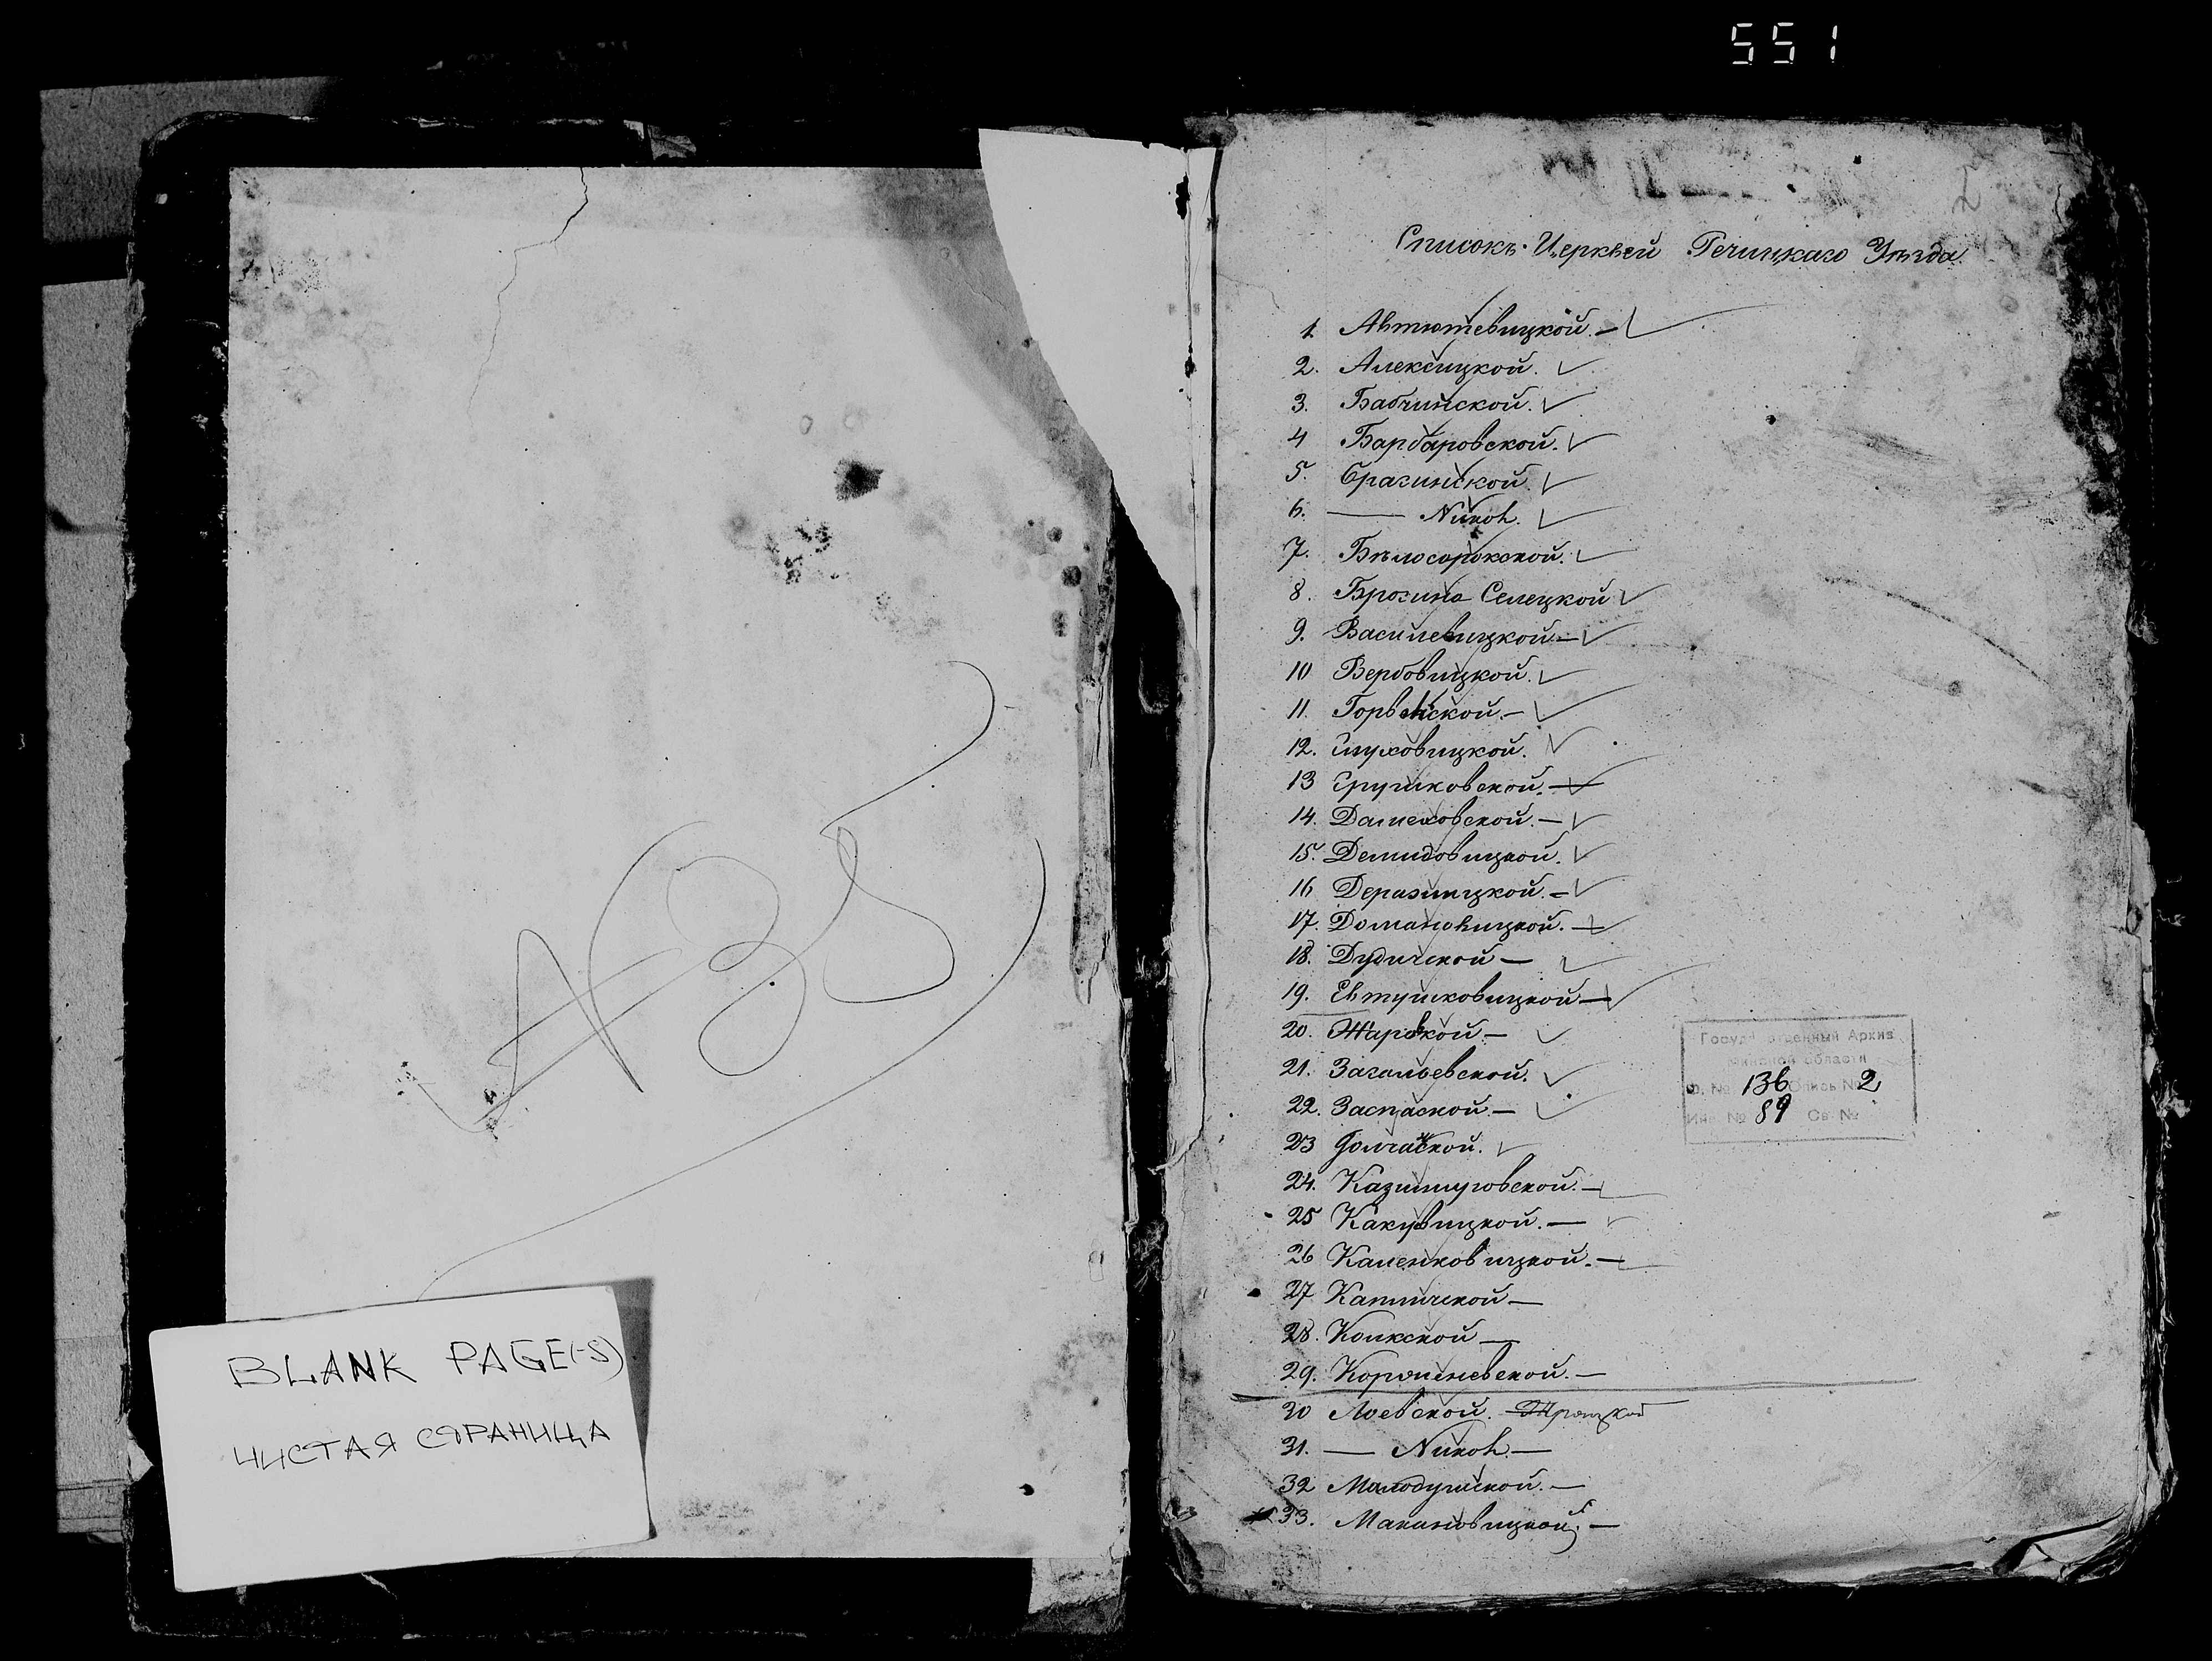 551
2
Списокъ Церквей Речицкаго Уѣзда.
1. Автютевицкой. —
2. Алексицкой.
3. Бабчинской.
4 Барбаровской.
5. Брагинской.
6. — Никол.
7. Бѣлосорокской.
8. Брогино Селецкой
9. Василевицкой —
10 Вербовицкой.
11. Горвольской. —
12. Глуховицкой.
13 Грушковской. —
14. Дамеховской. —
15. Демидовицкой.
16 Деражицкой. —
17. Домановицкой. —
18. Дудичской —
19. Евтушковицкой —
20. Жарской —
21. Загальевской.
22. Заспаской —
23 Iолчаской.
24. Казимировской. —
25 Какувицкой. —
26 Каленковицкой. —
27 Капличской —
28. Колкской —
29. Корчиеневской. —
30 Лоевской. Троицкой
31. — Никол —
32 Малодушской. —
33. Макановицкой. —
Государственный Архив
Минской области
Ф. № 136 Опись № 2
Инв № 89 Св №
BLANK PAGE(-S)
ЧИСТАЯ СТРАНИЦА